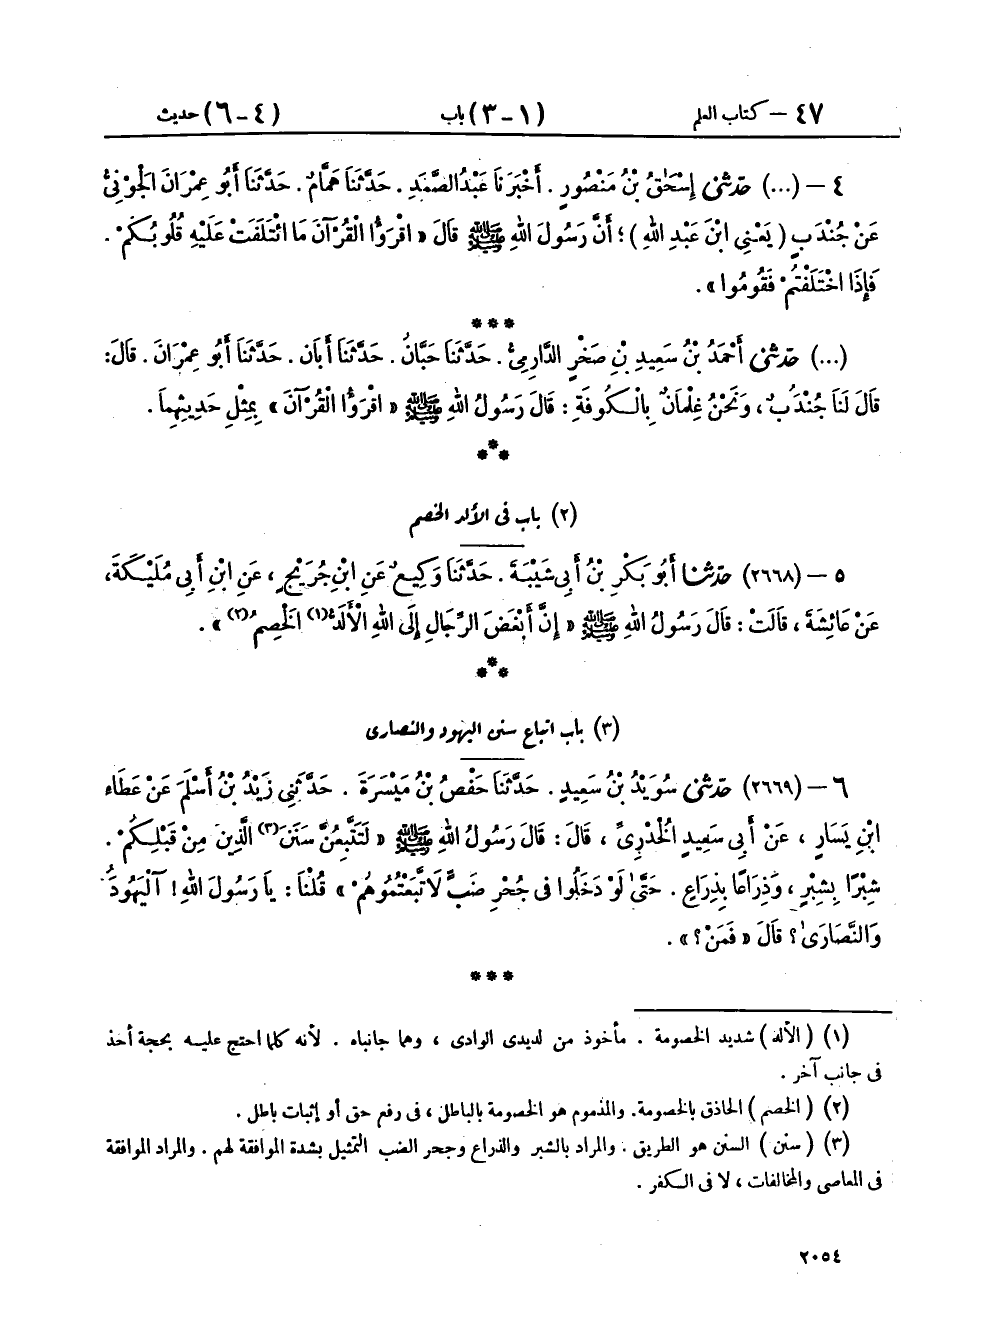 ٤٧ – كتاب العلم (١ – ٣) باب (٤ – ٦) حديث
٤ – (...) حَدَّثَنِي إِسْحَٰقُ بْنُ مَنْصُورٍ . أَخْبَرَنَا عَبْدُالصَّمَدِ . حَدَّثَنَا هَمَّامٌ . حَدَّثَنَا أَبُو عِمْرَانَ الْجَوْنِيُّ
عَنْ جُنْدَبٍ ( يَعْنِي ابْنَ عَبْدِ اللهِ ) ؛ أَنَّ رَسُولَ اللهِ ﷺ قَالَ « اقْرَؤُا الْقُرْآنَ مَا ائْتَلَفَتْ عَلَيْهِ قُلُوبُكُمْ .
فَإِذَا اخْتَلَفْتُمْ فَقُومُوا » .
***
(...) حَدَّثَنِي أَحْمَدُ بْنُ سَعِيدِ بْنِ صَخْرٍ الدَّارِمِيُّ . حَدَّثَنَا حَبَّانُ . حَدَّثَنَا أَبَان . حَدَّثَنَا أَبُو عِمْرَانَ . قَالَ :
قَالَ لَنَا جُنْدَبٌ ، وَنَحْنُ غِلْمَانٌ بِالْكُوفَةِ : قَالَ رَسُولُ اللهِ ﷺ « اقْرَؤُا الْقُرْآنَ » بِمِثْلِ حَدِيثِهِمَا .
***
(٢) باب فى الألد الخصم
٥ – (٢٦٦٨) حَدَّثَنَا أَبُو بَكْرِ بْنُ أَبِي شَيْبَةَ . حَدَّثَنَا وَكِيعٌ عَنِ ابْنِ جُرَيْجٍ ، عَنِ ابْنِ أَبِي مُلَيْكَةَ ،
عَنْ عَائِشَةَ ، قَالَتْ : قَالَ رَسُولُ اللهِ ﷺ « إِنَّ أَبْغَضَ الرِّجَالِ إِلَى اللهِ الْأَلَدُّ(١) الْخَصِمُ(٢) » .
***
(٣) باب اتباع سنن اليهود والنصارى
٦ – (٢٦٦٩) حَدَّثَنِي سُوَيْدُ بْنُ سَعِيدٍ . حَدَّثَنَا حَفْصُ بْنُ مَيْسَرَةَ . حَدَّثَنِي زَيْدُ بْنُ أَسْلَمَ عَنْ عَطَاءِ
ابْنِ يَسَارٍ ، عَنْ أَبِي سَعِيدٍ الْخُدْرِيِّ ، قَالَ : قَالَ رَسُولُ اللهِ ﷺ « لَتَتَّبِعُنَّ سَنَنَ(٣) الَّذِينَ مِنْ قَبْلِكُمْ .
شِبْرًا بِشِبْرٍ ، وَذِرَاعًا بِذِرَاعٍ . حَتَّىٰ لَوْ دَخَلُوا فِى جُحْرِ ضَبٍّ لَاتَّبَعْتُمُوهُمْ » قُلْنَا : يَا رَسُولَ اللهِ ! آلْيَهُودُ
وَالنَّصَارَىٰ ؟ قَالَ « فَمَنْ ؟ » .
***
(١) ( الألد ) شديد الخصومة . مأخوذ من لديدى الوادى ، وهما جانباه . لأنه كلما احتج عليه بحجة أخذ
فى جانب آخر .
(٢) ( الخصم ) الحاذق بالخصومة . والمذموم هو الخصومة بالباطل ، فى رفع حق أو إثبات باطل .
(٣) ( سنن ) السنن هو الطريق . والمراد بالشبر والذراع وجحر الضب التمثيل بشدة الموافقة لهم . والمراد الموافقة
فى المعاصى والمخالفات ، لا فى الكفر .
٢٠٥٤